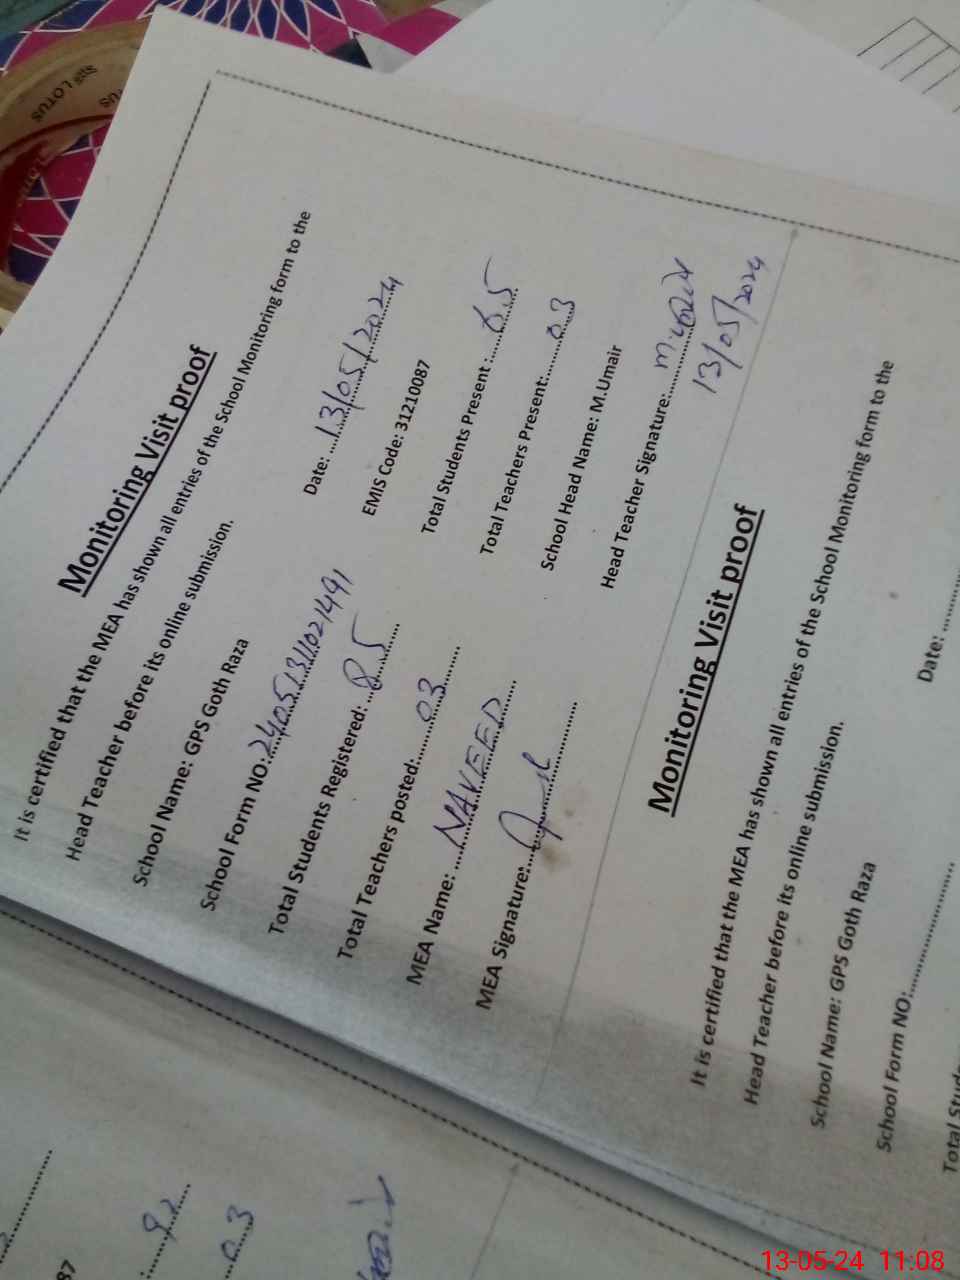 LOTUS
Monitoring Visit proof
It is certified that the MEA has shown all entries of the School Monitoring form to the
Head Teacher before its online submission.
School Name: GPS Goth Raza
Date: 13/05/2024
School Form NO: 24051311021491
EMIS Code: 31210087
Total Students Registered: 85
Total Students Present: 65
Total Teachers posted: 03
Total Teachers Present: 03
MEA Name: NAVEED
School Head Name: M.Umair
MEA Signature:
Head Teacher Signature: M.Umair
13/05/2024
Monitoring Visit proof
It is certified that the MEA has shown all entries of the School Monitoring form to the
Head Teacher before its online submission.
School Name: GPS Goth Raza
Date:
School Form NO:
Total
87
92
03
13-05-24 11:08